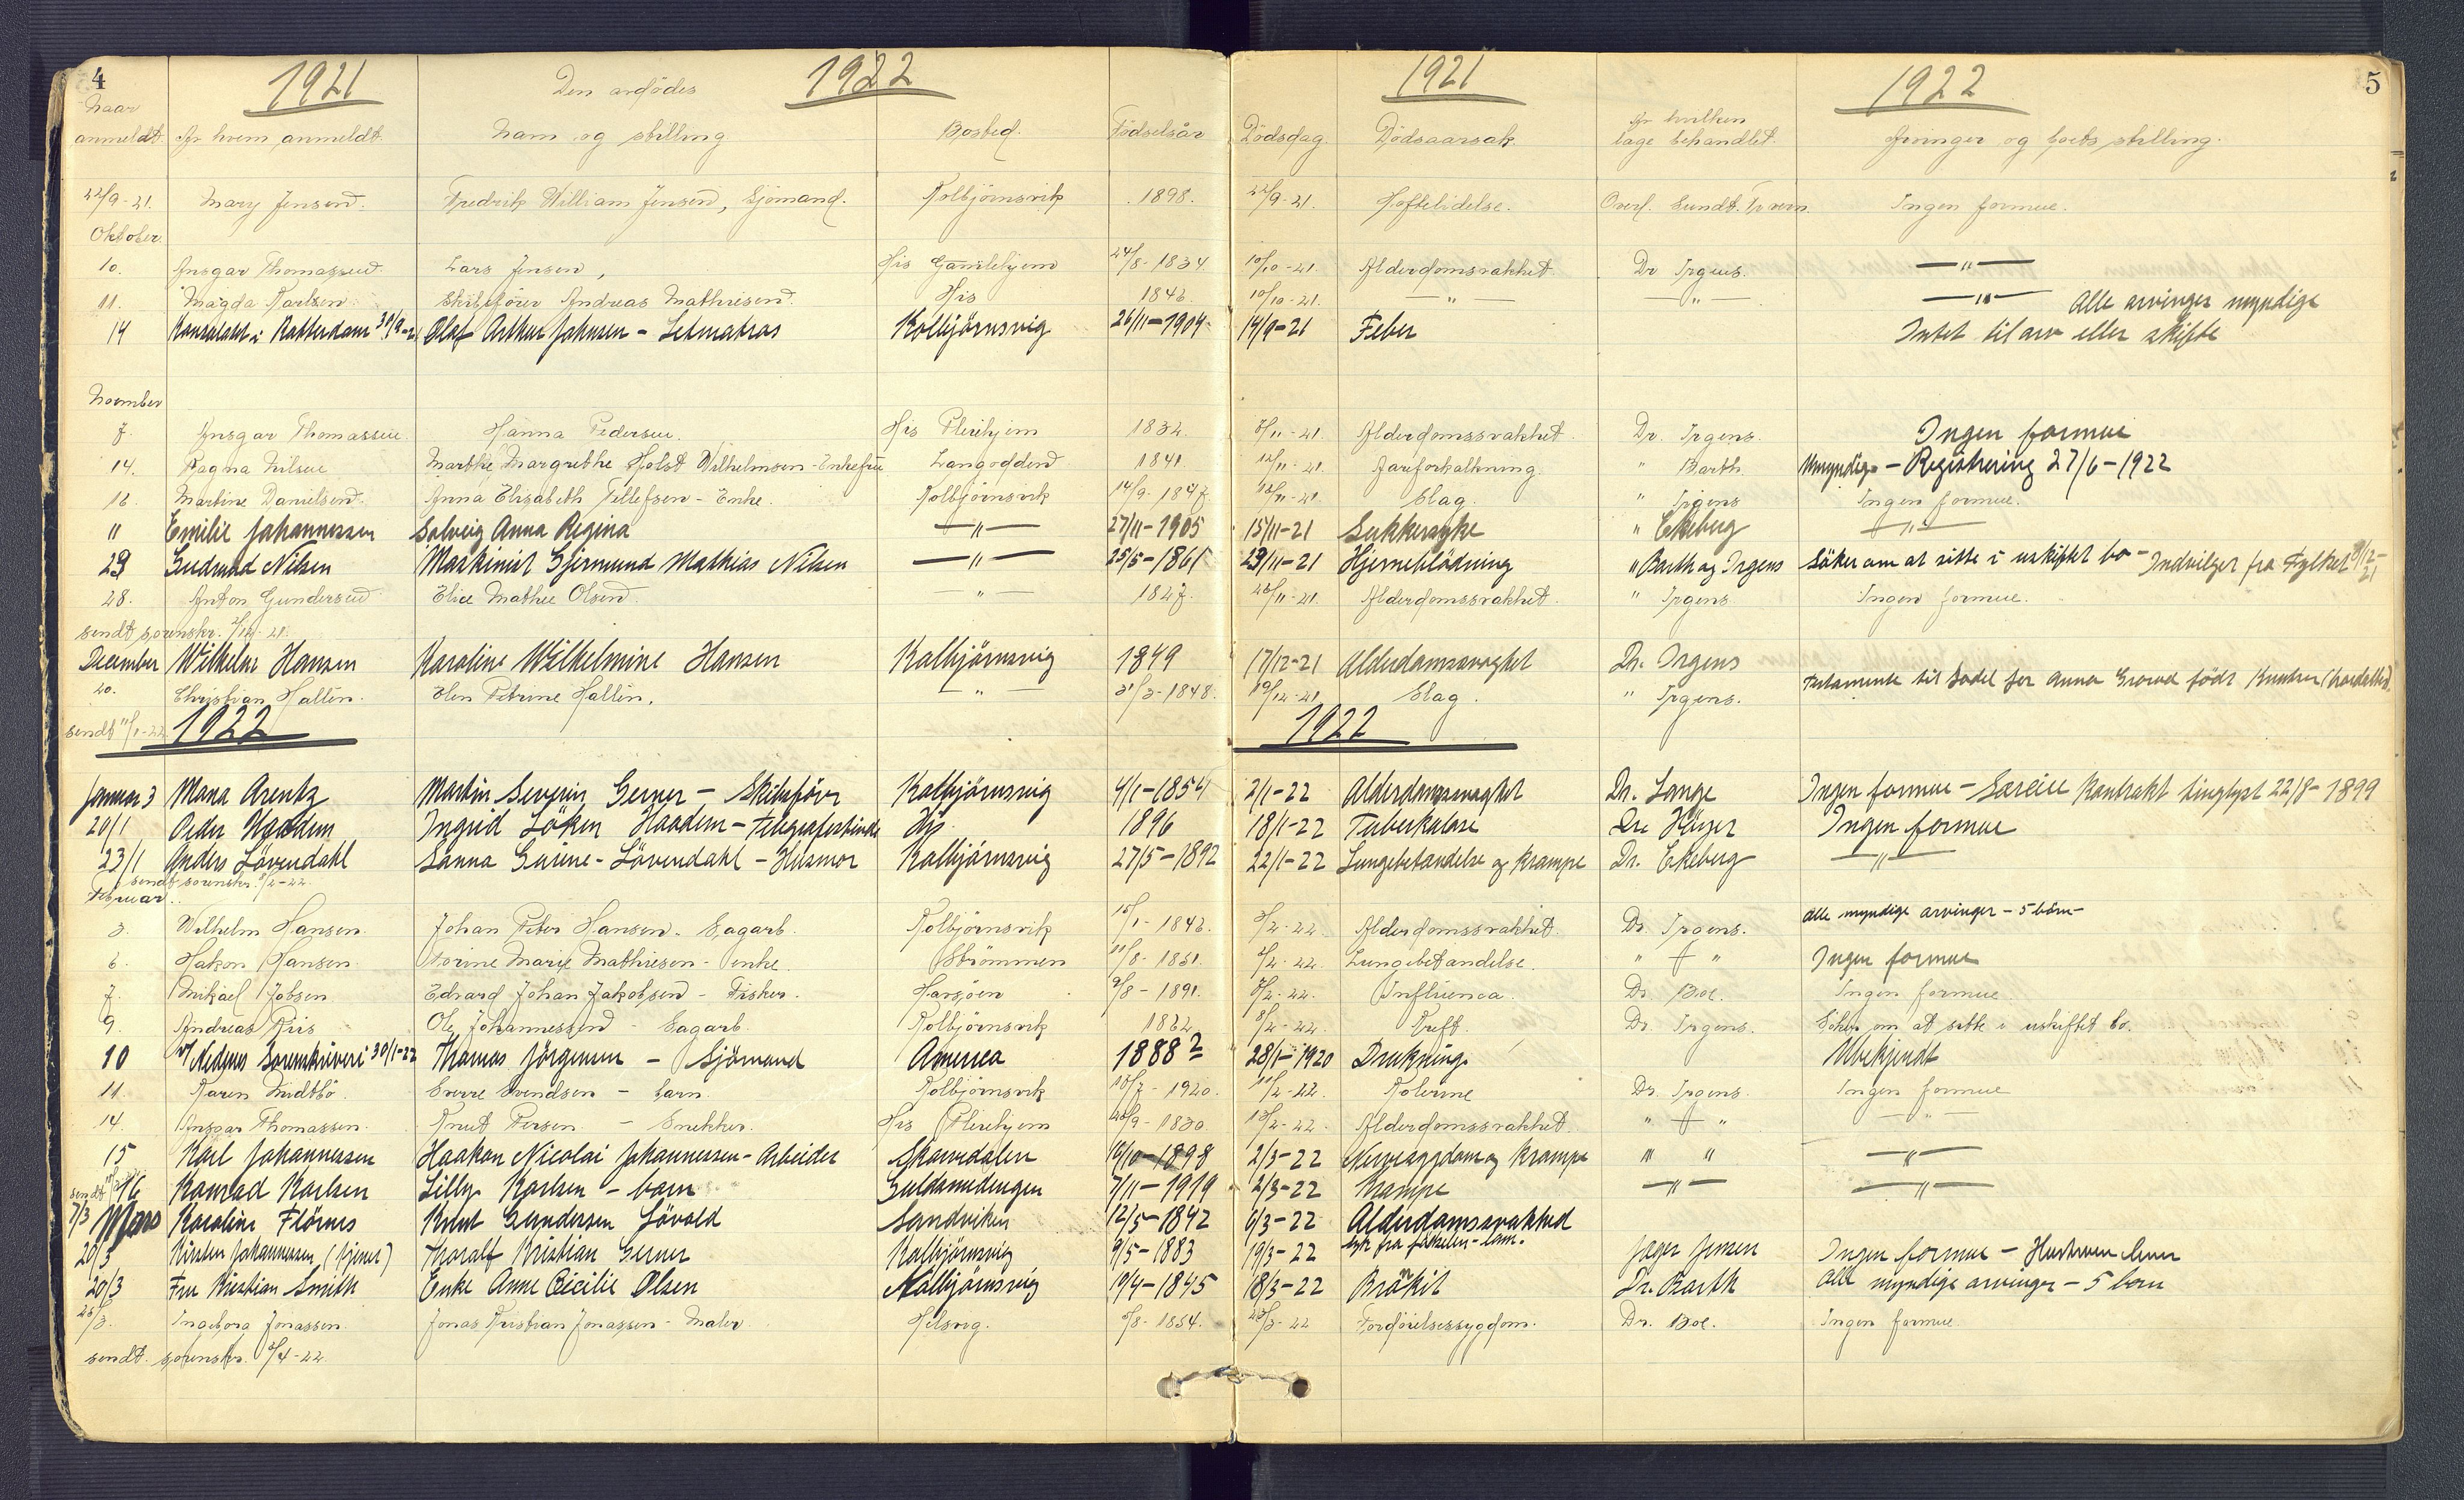 4 1921 Den avdödes 1922 1921 1922 5
Naar anmeldt. Av hvem anmeldt. Navn og stilling Bosted. Födselsår Dödsdag. Dödsaarsak. Av hvilken læge behandlet. Arvinger og boets stilling.
22/9-21. Mary Jensen. Fredrik William Jensen, Sjömand. Kolbjörnsvik 1898. 22/9-21. Hoftelidelse. Ingen formue.
Oktober.
10. Ansgar Thomassen Lars Jensen, His Gamlehjem 24/8-1834 10/10-21. Alderdomsvakhet Dr Irgens. —"—
11. Magda Karlsen Skibsförer Andreas Mathiesen. His 1842. 10/10-21. —"— —"— —"— Alle arvinger myndige
14 Konsulatet i Rotterdam 30/9-21 Olaf Arthur Johnsen - Letmatros Kolbjörnsvig 26/11-1904 14/9-21 Feber Intet til arv eller skifte
November
7. Ansgar Thomassen. Hanna Pedersen. His Pleiehjem 1832. Alderdomssvakhet. Dr. Irgens. Ingen formue
14. Ragna Nilsen Marthe Margrethe Holst Wilhelmsen - Enkefrue Langodden 1841. 12/11-21. Aareforkalkning. " Barth Umyndige - Registrering 27/6-1922
16. Martine Danielsen. Anna Elisabeth Tellefsen - Enke. Kolbjörnsvik 14/9-1847. Slag. " Irgens Ingen formue.
" Emilie Johannessen Solveig Anna Regina —"— 27/11-1905 15/11-21 Sukkersyke " Ekeberg —"—
29 Gudrund Nilsen Maskinist Gjermund Mathias Nilsen —"— 25/5-1861 29/11-21 Hjerneblödning " Barth og Irgens Söker om at sitte i uskiftet bo - Indvilget fra Fylket
28. Anton Gundersen Elise Mathee Olsen. —"— 1827. 26/11-21. Alderdomssvakhet. " Irgens Ingen formue.
sendt sorenskr. 2/12-21.
December Wilhelm Hansen Karoline Wilhelmine Hansen Kolbjörnsvig 1849 17/12-21 Alderdomssvaghet Dr. Irgens
20. Christian Hallin. Elen Petrine Hallin. —"— 31/3-1848. 19/12-21. Slag. " Irgens. Testamente til Sadel for Anna födt Knutsen
sendt 11/1-22 1922 1922
Januar 3 Mana Arentz Martin Severin Gerner - Skibsförer Kolbjörnsvig 4/1-1854 2/1-22 Alderdomssvaghet Dr. Lange Ingen formue - Særeie kontrakt tinglyst 22/8-1899
20/1 Peder Haadem Ingrid Löken Haadem - Telegrafistinde His 1896 18/1-22 Tuberkulose Dr. Höyer Ingen formue
23/1 Anders Lövendahl Sanna Gurine - Lövendahl - Husmor Kolbjörnsvig 27/5-1892 22/1-22 Lungebetændelse og Krampe Dr. Ekeberg —"—
sendt sorenskr. 8/2-22.
Februar.
3. Wilhelm Hansen. Johan Peter Hansen - Sagarb. Kolbjörnsvik 15/1-1842. 3/2-22. Alderdomssvakhet. Dr. Irgens. Alle myndige arvinger - 5 börn -
6. Hakon Hansen. Torine Marie Mathiesen - enke. Strömmen 11/8-1851. Lungebetændelse. " " Ingen formue
7. Mikael Jobsen Edvard Johan Jakobsen - Fisker. Havsöen 9/8-1891. Influenca. Dr. Boe. Ingen formue
9. Andreas Riis Ole Johannessen - Sagarb. Kolbjörnsvik 1862 8/2-22. Kreft. Dr. Irgens. Söker om at sitte i uskiftet bo.
10 v/ Nedenes Sorenskriveri 30/1-22 Thomas Jörgensen - Sjömand America 1888? 28/1-1920 Drukning Ubekjendt
11. Karen Midtbö. Sverre Svendsen - barn Kolbjörnsvik 18/7-1920. 11/2-22. Kolerine Dr. Irgens. Ingen formue
14. Ansgar Thomassen. Knut Persen - Snekker. His Pleiehjem 1830. 13/2-22. Alderdomssvakhet. " " —"—
15 Karl Johannessen Haakon Nicolai Johannessen - Arbeider Skarvdalen 16/10-1898 2/3-22 Nervesygdom og Krampe " " —"—
16 Konrad Karlsen Lilly Karlsen - barn Guldsmedengen 7/11-1919 2/3-22 Krampe —"— —"—
7/3 Mars Karoline Flörnes Knut Gundersen Lövold Sandviken 12/5-1842 6/3-22 Alderdomssvakhed
20/3 Kirsten Johannessen, (tjener) Thoralf Kristian Gerner Kolbjörnsvig 9/5-1883 19/3-22 syk fra födselen - lam. Jæger Jensen Ingen formue - Hustruen lever
20/3 Fru Kristian Smith Enke Anne Cecilie Olsen Kolbjörnsvig 10/4-1845 18/3-22 Brånkit Dr. Barth Alle myndige arvinger - 5 barn
25/3. Ingeborg Jonassen. Jonas Kristian Jonassen - Maler Hilsvig. 5/8-1854. Fordöielsessygdom. Dr. Boe. Ingen formue
sendt. sorenskr. 3/4-22